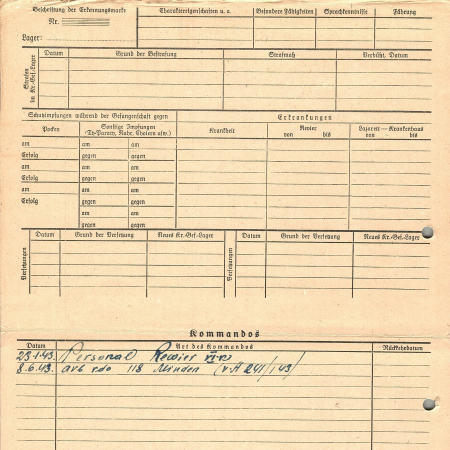 Beschriftung der Erkennungsmarke
Nr.
Lager:
Charaktereigenschaften u. a.
Besondere Fähigkeiten
Sprachkenntnisse
Führung
Strafen im Kr.-Gef.-Lager
Datum
Grund der Bestrafung
Strafmaß
Verbüßt, Datum
Schutzimpfungen während der Gefangenschaft gegen
Erkrankungen
Pocken
Sonstige Impfungen
(Ty-Paraty, Ruhr, Cholera usw.)
Krankheit
Revier
von bis
Lazarett – Krankenhaus
von bis
am am am
Erfolg gegen gegen
am am am
Erfolg gegen gegen
am am am
Erfolg gegen gegen
am am am
Erfolg gegen gegen
am am
gegen gegen
Versetzungen
Datum
Grund der Versetzung
Neues Kr.-Gef.-Lager
Versetzungen
Datum
Grund der Versetzung
Neues Kr.-Gef.-Lager
Kommandos
Datum
Art des Kommandos
Rückkehrdatum
23.1.43. Personal Revier
8.6.43. arb kdo 118 Minden (v. A 241/43)